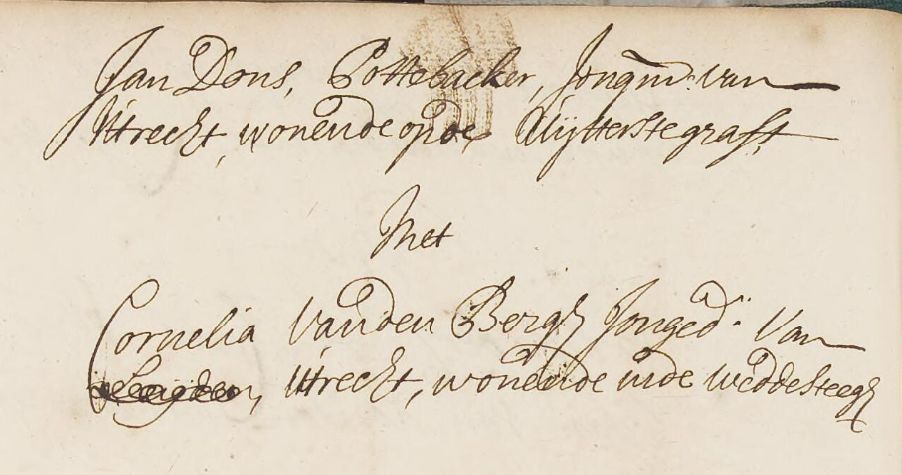 Jan Dons, Pottebacker, Jongm: van
Vtrecht, wonende op de Uijtterstegraft,
Met
Cornelia Vanden Bergh Jonged: Van
Vtrecht, wonende inde Weddesteegh